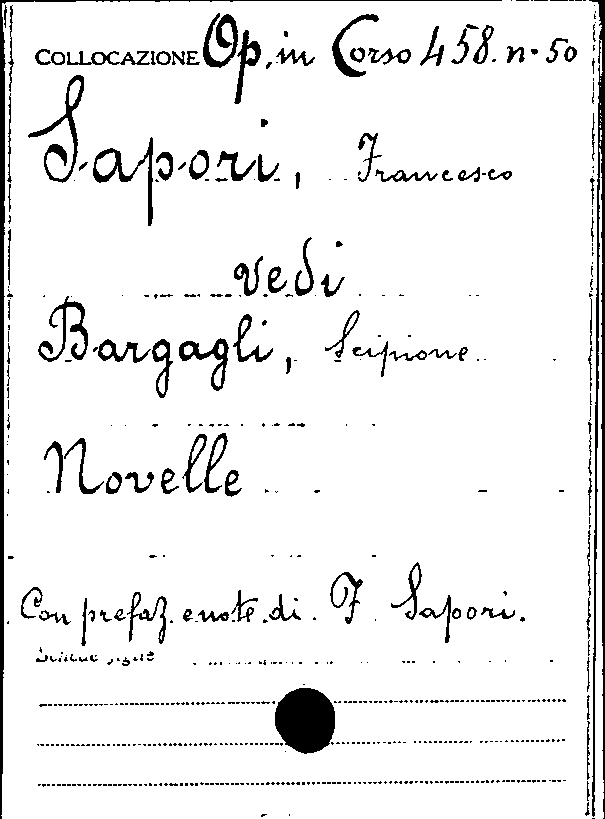 COLLOCAZIONE Op. in Corso 458. n. 50
Sapori, Francesco
vedi
Bargagli, Scipione
Novelle
Con prefaz. e note di F. Sapori.